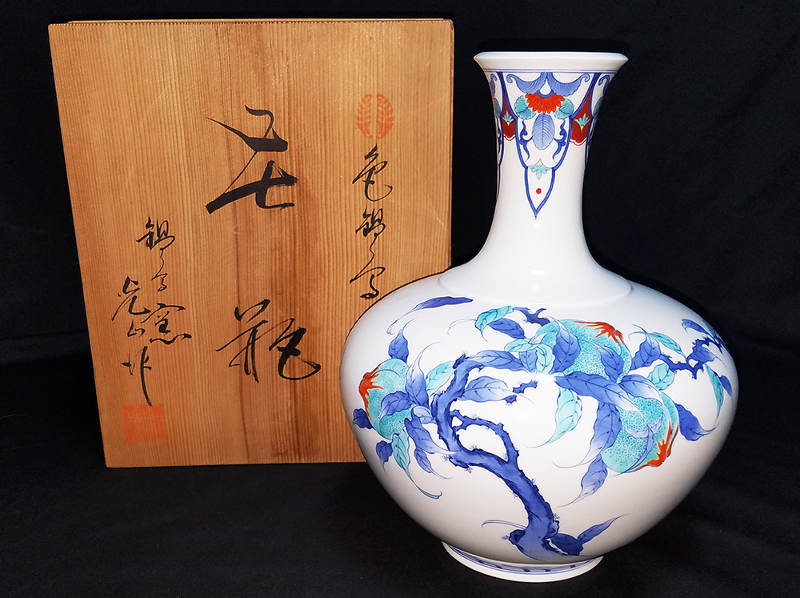 色鍋島
花瓶
鍋島窯
光山作